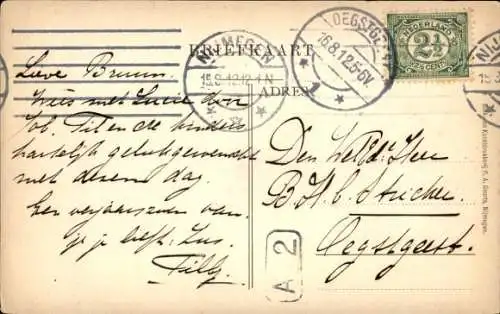 BRIEFKAART
ADRES
NIJMEGEN
15.8.12.12-1N
OEGSTGEEST
16.8.12.5-6V.
NEDERLAND
2½
CENT
Lieve Bruun
met Lucie
Job. Til en de kinders
hartelijk gelukgewenscht
met dezen dag.
Een verjaarszoen van
je je liefh. Zus.
Tilly.
Den WelEd. Heer
B. H. C. Stricker
Oegstgeest.
A 2
Nijmegen.